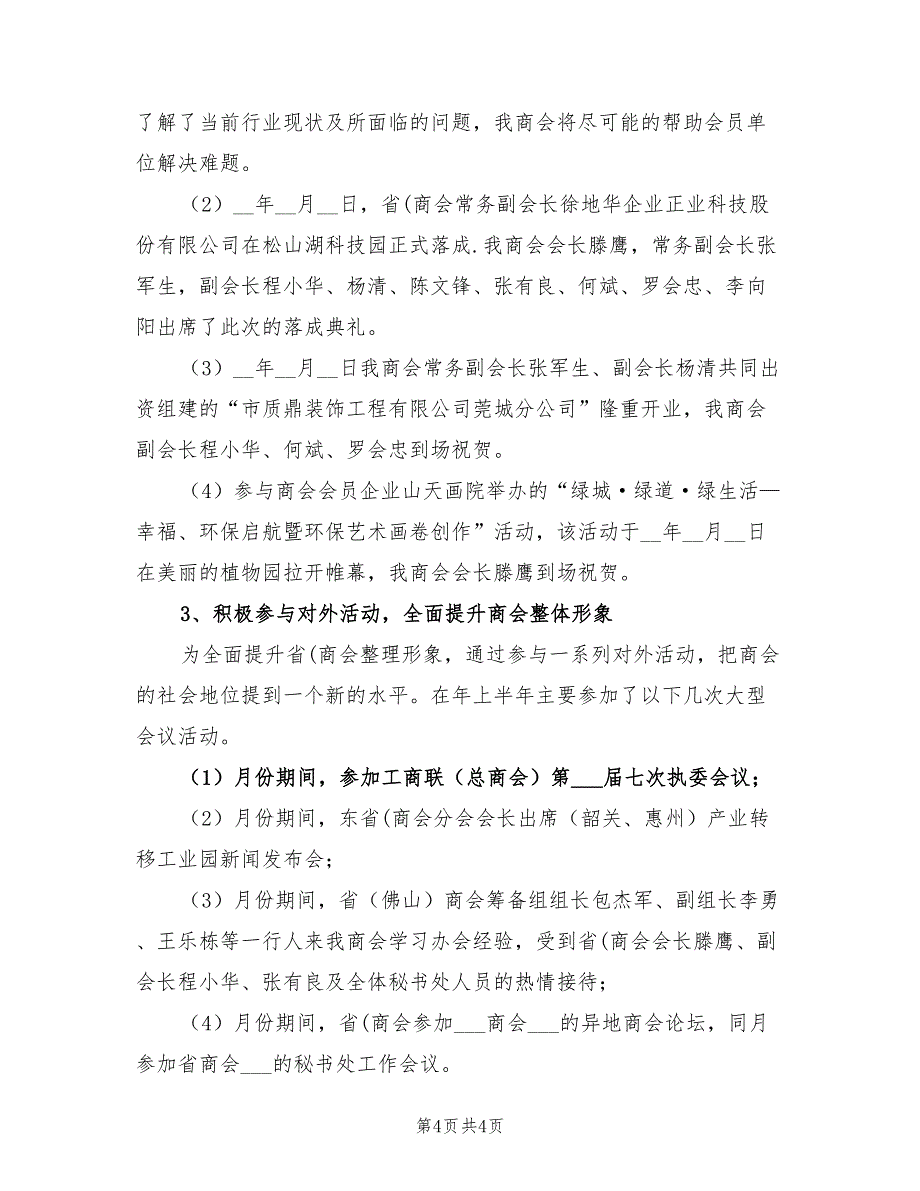 了解了当前行业现状及所面临的问题，我商会将尽可能的帮助会员单
位解决难题。
（2）__年__月__日，省(商会常务副会长徐地华企业正业科技股
份有限公司在松山湖科技园正式落成.我商会会长滕鹰，常务副会长张
军生，副会长程小华、杨清、陈文锋、张有良、何斌、罗会忠、李向
阳出席了此次的落成典礼。
（3）__年__月__日我商会常务副会长张军生、副会长杨清共同出
资组建的“市质鼎装饰工程有限公司莞城分公司”隆重开业，我商会
副会长程小华、何斌、罗会忠到场祝贺。
（4）参与商会会员企业山天画院举办的“绿城·绿道·绿生活—
幸福、环保启航暨环保艺术画卷创作”活动，该活动于__年__月__日
在美丽的植物园拉开帷幕，我商会会长滕鹰到场祝贺。
3、积极参与对外活动，全面提升商会整体形象
为全面提升省(商会整理形象，通过参与一系列对外活动，把商会
的社会地位提到一个新的水平。在年上半年主要参加了以下几次大型
会议活动。
（1）月份期间，参加工商联（总商会）第___届七次执委会议；
（2）月份期间，东省(商会分会会长出席（韶关、惠州）产业转
移工业园新闻发布会；
（3）月份期间，省（佛山）商会筹备组组长包杰军、副组长李勇
、王乐栋等一行人来我商会学习办会经验，受到省(商会会长滕鹰、副
会长程小华、张有良及全体秘书处人员的热情接待；
（4）月份期间，省(商会参加___商会___的异地商会论坛，同月
参加省商会___的秘书处工作会议。
第4页 共4页